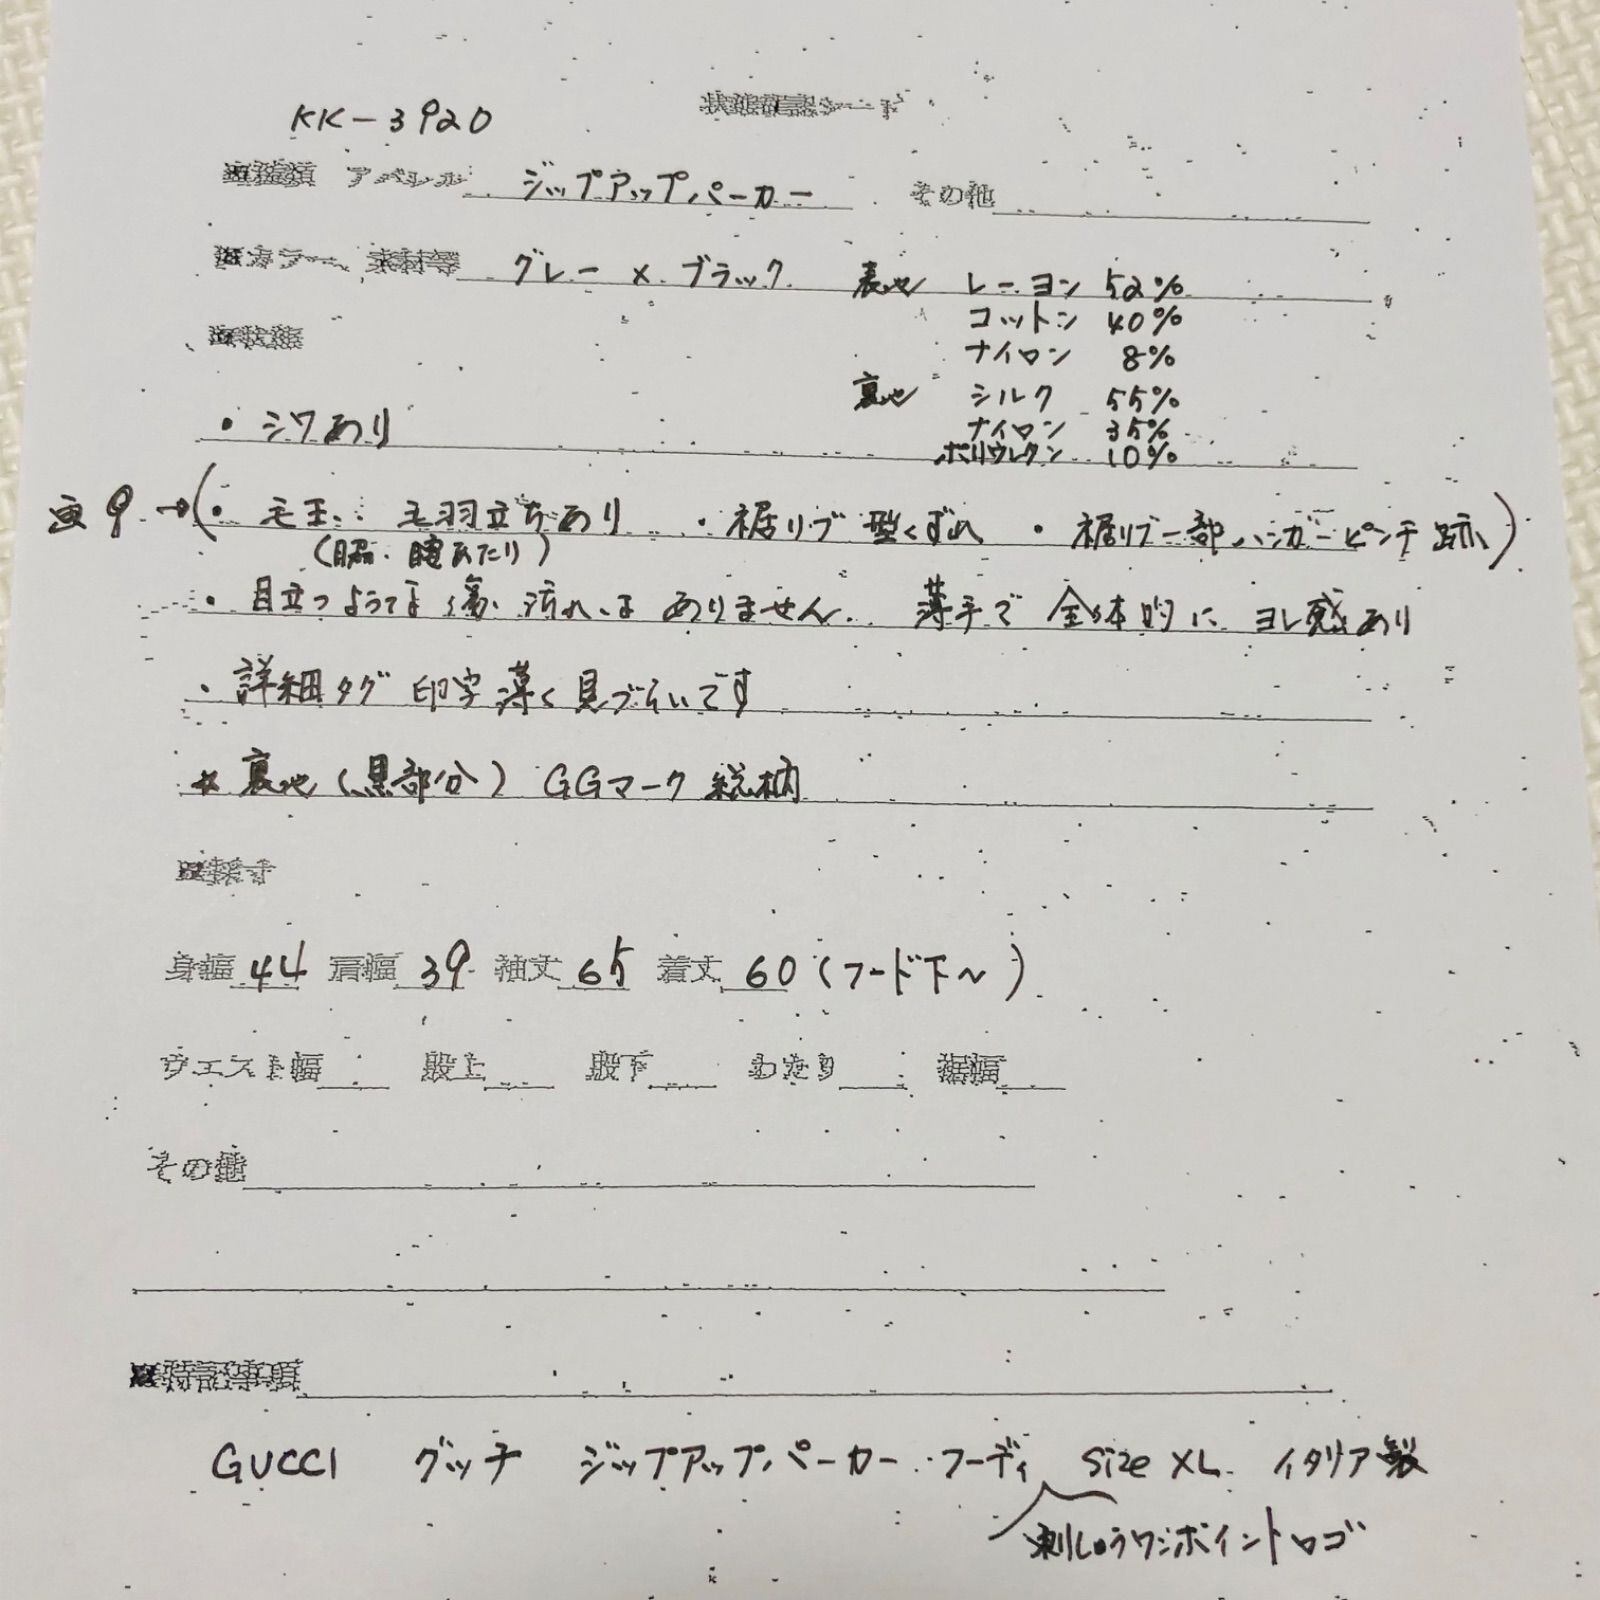 KK-3920
状態確認シート
■種類 アパレル ジップアップパーカー その他
■カラー、素材等 グレー × ブラック 表地 レーヨン 52%
コットン 40%
ナイロン 8%
■状態
裏地 シルク 55%
・シワあり
ナイロン 35%
ポリウレタン 10%
画9→(・毛玉、毛羽立ちあり ・裾リブ型くずれ ・裾リブ一部ハンガーピンチ跡)
(脇・腕あたり)
・目立つような傷、汚れはありません。薄手で全体的にヨレ感あり
・詳細タグ印字薄く見づらいです
* 裏地(黒部分) GGマーク総柄
■採寸
身幅 44 肩幅 39 袖丈 65 着丈 60(フード下〜)
ウエスト幅 股上 股下 わたり 裾幅
その他
■特記事項
GUCCI グッチ ジップアップパーカー・フーディ Size XL イタリア製
刺しゅうワンポイントロゴ